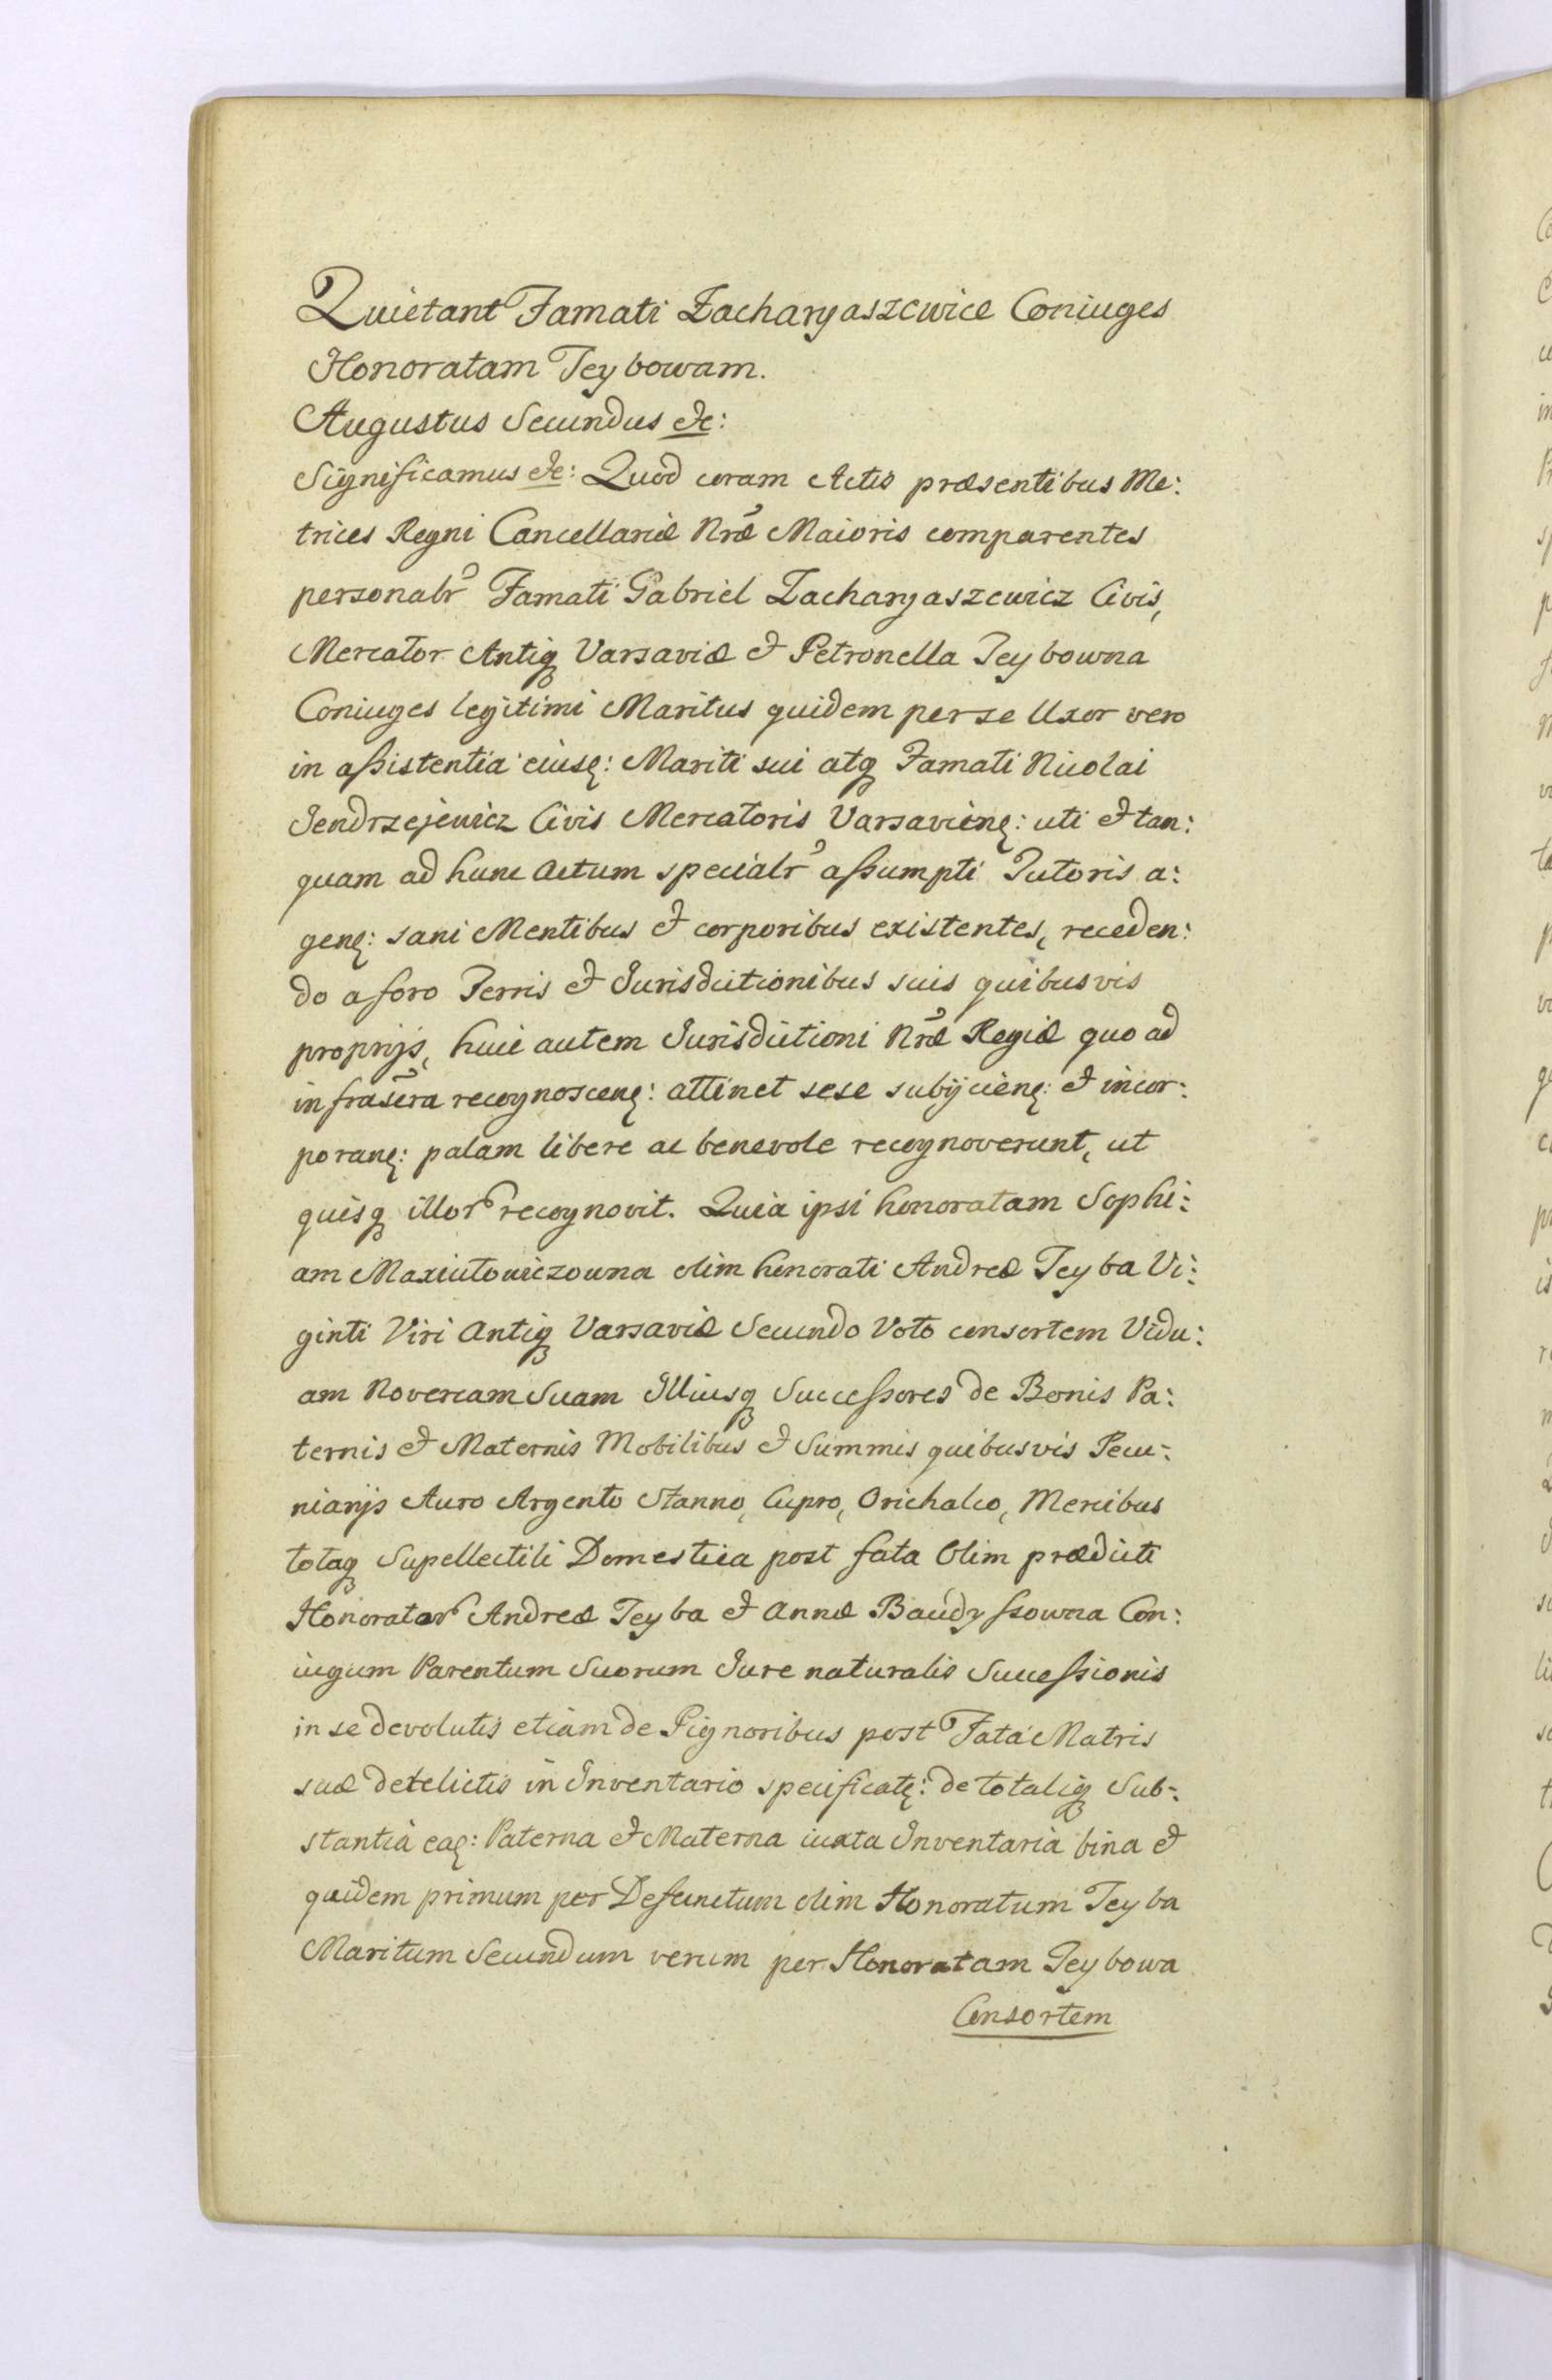 Quietant Famati Zacharyaszewicz Coniuges
Honoratam Teybowam.
Augustus Secundus &c:
Significamus &c: Quod coram Actis præsentibus Me:
trices Regni Cancellariæ Nræ Maioris comparentes
personalr Famati Gabriel Zacharyaszewicz Civis,
Mercator Antiq Varsaviæ et Petronella Teybowna
Coniuges legitimi Maritus quidem per se Uxor vero
in assistentia eiusꝫ: Mariti sui atq Famati Nicolai
Jendrzejewicz Civis Mercatoris Varsavienꝫ: uti et tan:
quam ad hunc Actum specialr assumpti Tutoris a:
genꝫ: sani Mentibus et corporibus existentes, receden:
do a foro Terris et Jurisdictionibus suis quibusvis
proprijs, huic autem Jurisdictioni Nræ Regiæ quo ad
infrascra recognoscenꝫ: attinet sese subijcienꝫ: et incor:
poranꝫ: palam libere ac benevole recognoverunt, ut
quisq illor recognovit. Quia ipsi honoratam Sophi:
am Maxiutowiczowna olim honorati Andreæ Teyba Vi:
ginti Viri Antiq Varsaviæ Secundo Voto consortem Vidu:
am Novercam Suam Illiusq Successores de Bonis Pa:
ternis et Maternis Mobilibus et Summis quibusvis Pecu:
niarijs Auro Argento Stanno, Cupro, Orichalco, Mercibus
totaq Supellectili Domestica post fata Olim prædicti
Honorator Andreæ Teyba et Annæ Baudyssowna Con:
iugum Parentum Suorum Jure naturalis Successionis
in se devolutis etiam de Pignoribus post Fata Matris
suæ detelictis in Inventario specificatꝫ: de totaliq Sub:
stantia eaꝫ: Paterna et Materna iuxta Inventaria bina et
quidem primum per Defunctum olim Honoratum Teyba
Maritum Secundum verum per Honoratam Teybowa
Consortem